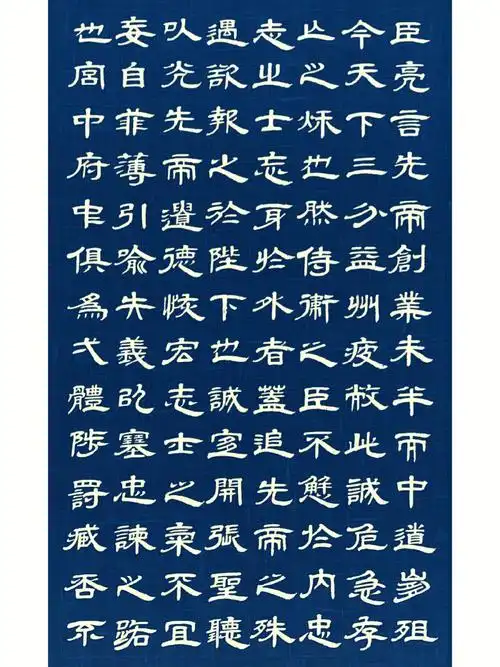 臣亮言先帝創業未半而中道崩殂
今天下三分益州疲敝此誠危急存
亡之秌也然侍衛之臣不懈於內忠
志之士忘身於外者蓋追先帝之殊
遇欲報之於陛下也誠宜開張聖聽
以光先帝遺德恢宏志士之氣不宜
妄自菲薄引喻失義以塞忠諫之路
也宮中府中俱爲弌體陟罰臧否不